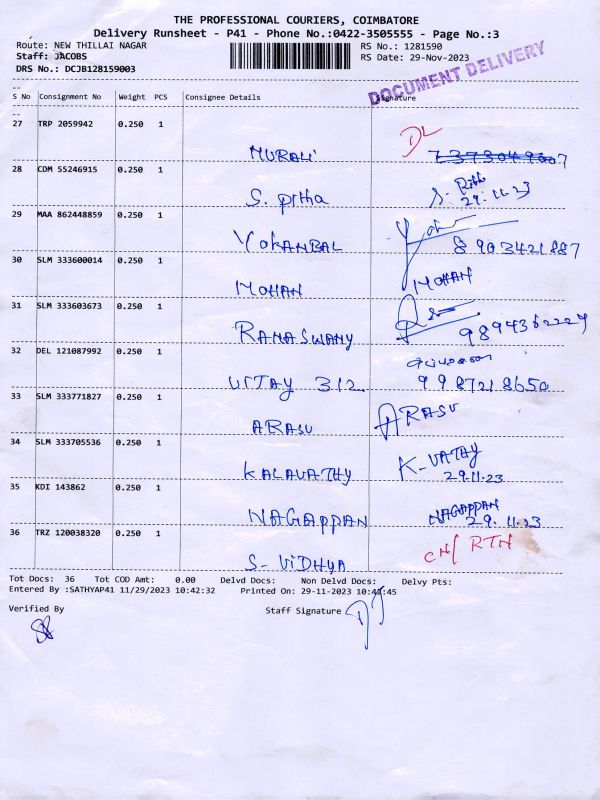 THE PROFESSIONAL COURIERS, COIMBATORE
Delivery Runsheet - P41 - Phone No.:0422-3505555 - Page No.:3
Route: NEW THILLAI NAGAR RS No.: 1281590
Staff: JACOBS RS Date: 29-Nov-2023
DRS No.: DCJB128159003
DOCUMENT DELIVERY
S No Consignment No Weight PCS Consignee Details Signature
27 TRP 2059942 0.250 1
MURALI DL
28 CDM 55246915 0.250 1
S. pritha 29.11.23
29 MAA 862448859 0.250 1
YOKANBAL 8903421887
30 SLM 333600014 0.250 1
MOHAN MOHAN
31 SLM 333603673 0.250 1
RAMASWAMY 9894362229
32 DEL 121087992 0.250 1
VIJAY 312 9987218650
33 SLM 333771827 0.250 1
ARASU ARASU
34 SLM 333705536 0.250 1
KALAVATHY K-VATHY
29.11.23
35 KDI 143862 0.250 1
NAGAPPAN NAGAPPAN
29.11.23
36 TRZ 120038320 0.250 1
S-VIDHYA CN/ RTH
Tot Docs: 36 Tot COD Amt: 0.00 Delvd Docs: Non Delvd Docs: Delvy Pts:
Entered By :SATHYAP41 11/29/2023 10:42:32 Printed On: 29-11-2023 10:42:45
Verified By Staff Signature